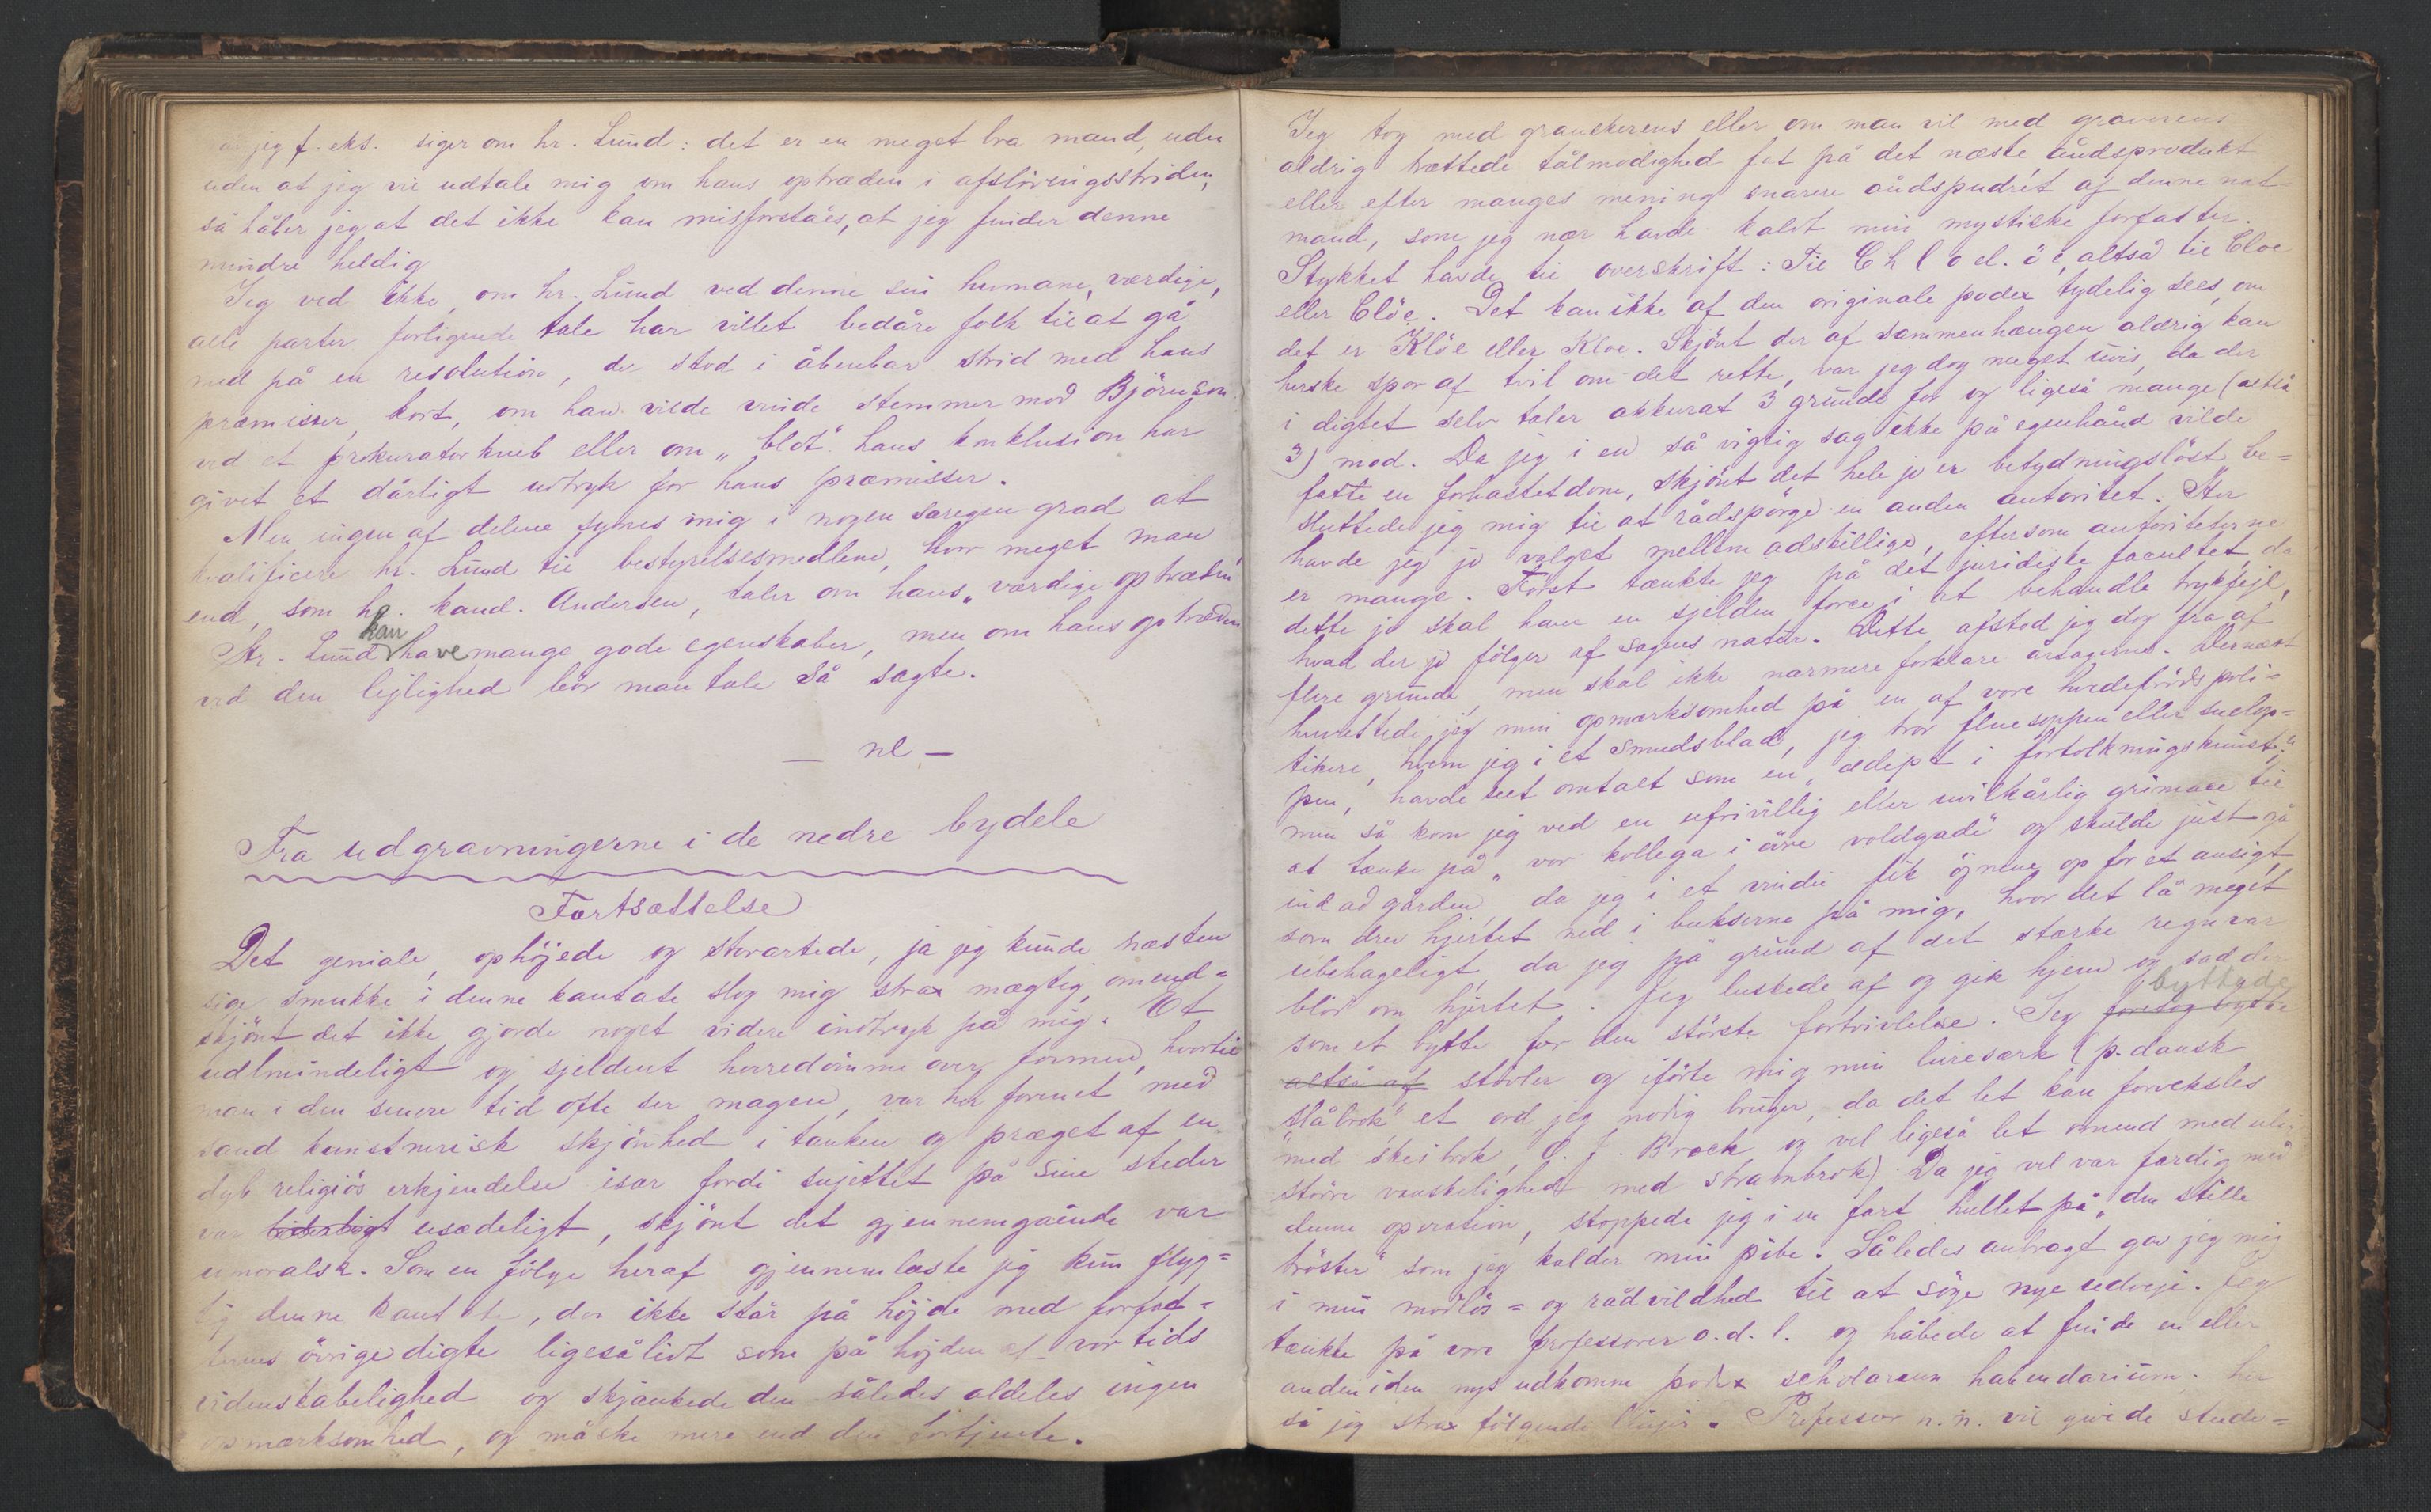 jeg f. eks. siger om hr. Lund: det er en meget bra mand, uden
uden at jeg vil udtale mig om hans optræden i afsløringsstriden,
så håber jeg at det ikke kan misforståes, at jeg finder denne
mindre heldig
Jeg ved ikke, om hr. Lund ved denne sin humane, værdige,
alle parter forligende tale har villet bedåre folk til at gå
med på en resolution, der stod i åbenbar strid med hans
præmisser, kort, om han vilde vinde stemmer mod Björnson
ved et prokuratorkneb eller om „blot“ hans konklusion har
givet et dårligt udtryk for hans præmisser.
Men ingen af delene synes mig i nogen særegen grad at
kvalificere hr. Lund til bestyrelsesmedlem, hvor meget man
end, som hr. kand. Andersen, taler om hans „værdige optræden“
Hr. Lund kan have mange gode egenskaber, men om hans optræden
ved den lejlighed bör man tale så sagte.
— nl —
Fra udgravningerne i de nedre bydele
Fortsættelse
Det geniale, ophöjede og storartede, ja jeg kunde næsten
sige smukke i denne kantate slog mig strax mægtig, omend=
skjönt det ikke gjorde noget videre indtryk på mig. Et
udlmindeligt og sjeldent herredömme over formen, hvortil
man i den senere tid ofte ser magen, var her forenet med
sand kunstnerisk skjönhed i tanken og præget af en
dyb religiös erkjendelse især fordi sujettet på sine steder
var usædeligt, skjönt det gjennemgående var
umoralsk. Som en fölge heraf gjennemlæste jeg kun flyg=
tig denne kantate, der ikke står på höjde med forfat=
terens övrige digte ligesålidt som på höjden af vor tids
videnskabelighed og skjænkede den således aldeles ingen
opmærksomhed, og måske mere end den fortjente.
Jeg tog med granskerens eller om man vil med graverens
aldrig trættede tålmodighed fat på det næste åndsprodukt
eller efter manges mening snarere åndspudrét af denne nat=
mand, som jeg nær havde kaldt min mystiske forfatter.
Stykket havde til overskrift: Til Chlo el. öe, altså til Cloe
eller Clöe. Det kan ikke af den originale podex tydelig sees, om
det er Klöe eller Kloe. Skjönt der af sammenhængen aldrig kan
herske spor af tvil om det rette, var jeg dog meget uvis, da der
i digtet selv taler akkurat 3 grunde for og ligeså mange (altså
3) mod. Da jeg i en så vigtig sag ikke på egenhånd vilde
fatte en forhastet dom, skjönt det hele jo er betydningslöst, be=
sluttede jeg mig til at rådspörge en anden autoritet. Her
havde jeg jo valget mellem adskillige, eftersom autoriteterne
er mange. Först tænkte jeg på det juridiske facultet, da
dette jo skal have en sjelden force i at behandle trykfejl,
hvad der jo fölger af sagens natur. Dette afstod jeg dog fra af
flere grunde, men skal ikke nærmere forklare årsagerne. Dernæst
henvendte jeg min opmærksomhed på en af vore hvedebröds poli=
tikere, hvem jeg i et smudsblad, jeg tror fluesoppen eller
pen, havde seet omtalt som en „adept i fortolkningskunst“;
men så kom jeg ved en ufrivillig eller uvilkårlig grimace til
at tænke på „vor kollega i övre voldgade“ og skulde just gå
ind ad gården da jeg i et vindu fik öjnene op for et ansigt,
som drev hjertet ned i bukserne på mig, hvor det lå meget
ubehageligt, da jeg på grund af det stærke regn var
blöd om hjertet. Jeg luskede af og gik hjem og sad der
som et bytte for den störste fortvivlelse. Jeg byttede
altså af stövler og iförte mig min luresærk (p. dansk
slåbrok“ et ord jeg nödig bruger, da det let kan forveksles
med skeibrok, O. J. Broch og vel ligeså let omend med
större vanskelighed med strambrok). Da jeg vel var færdig med
denne operation, stoppede jeg i en fart hullet på „den stille
tröster“ som jeg kalder min pibe. Således anbragt gav jeg mig
i min modlös= og rådvildhed til at söge nye udveje. Jeg
tænkte på vore professorer o. d. l. og håbede at finde en eller
anden i den nys udkomne podex scholarum habendarium. her
så jeg strax fölgende linjer. Professor n. n. vil give de stude=